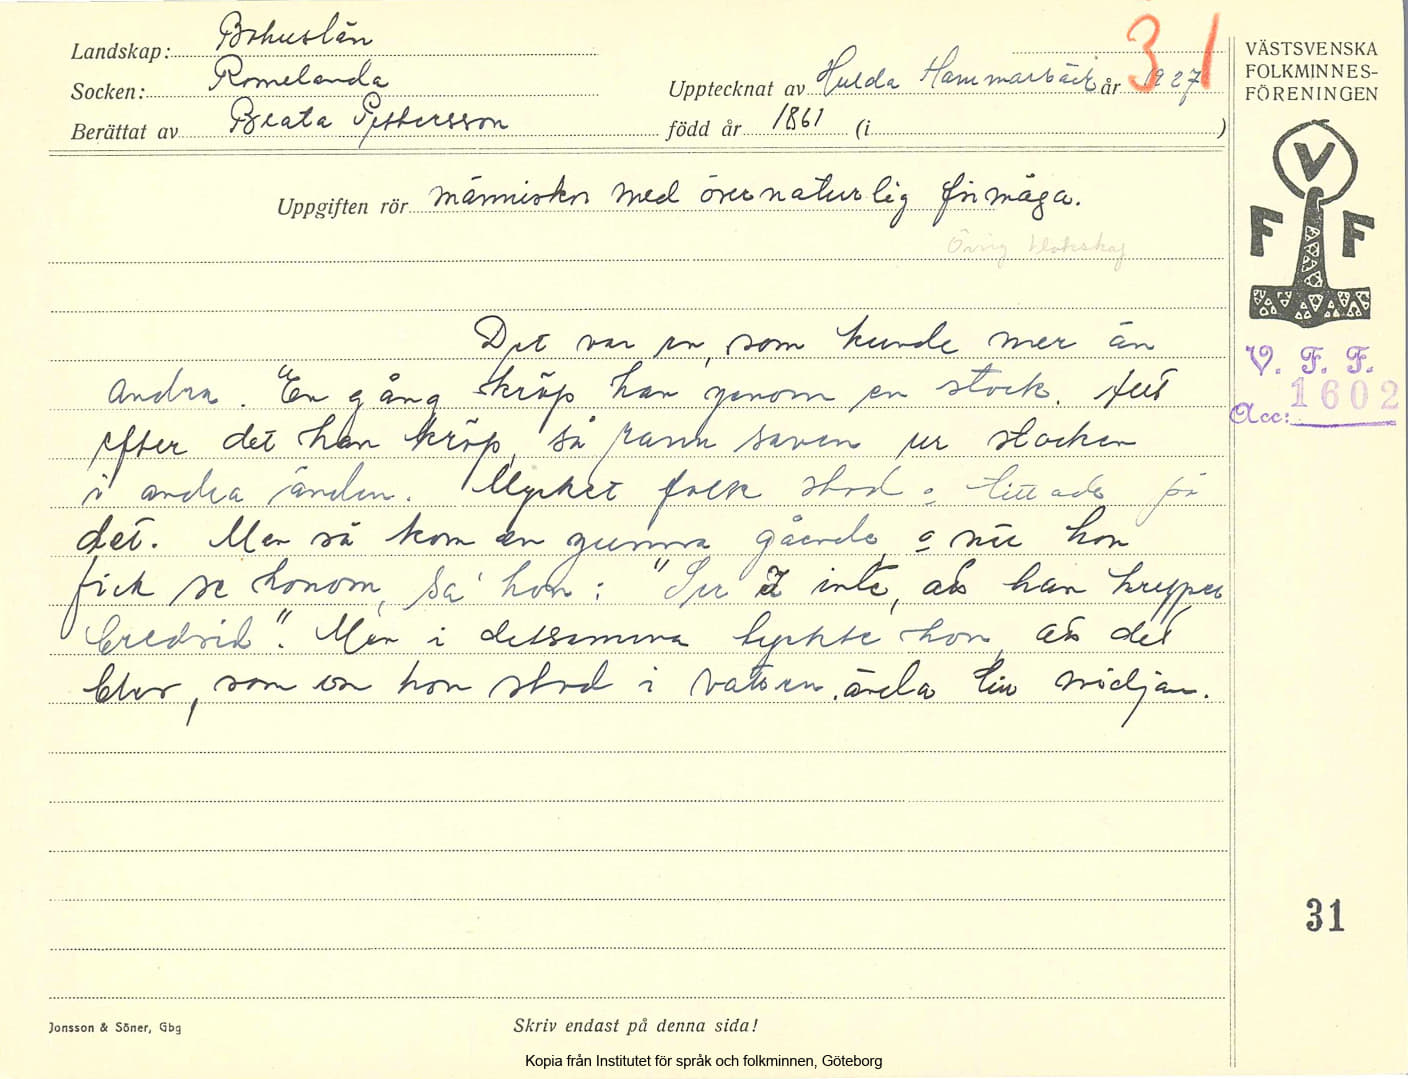 Landskap: Bohuslän
Socken: Romelanda
Upptecknat av Hulda Hammarbäck år 1927
Berättat av Beata Pettersson född år 1861 (i )
31
VÄSTSVENSKA
FOLKMINNES-
FÖRENINGEN
V
F F
V. F. F.
Acc: 1602
Uppgiften rör människor med övernaturlig förmåga.
Övrig klokskap
Det var en, som kunde mer än
andra. En gång kröp han genom en stock. Allt
efter det han kröp, så rann saven ur stocken
i andra änden. Mycket folk stod o tittade på
det. Men så kom en gumma gående, o när hon
fick se honom, sa' hon: "Ser I inte, att han kryper
bredvid". Men i detsamma tyckte hon, att det
blev, som om hon stod i vatten ända till midjan.
31
Jonsson & Söner, Gbg
Skriv endast på denna sida!
Kopia från Institutet för språk och folkminnen, Göteborg